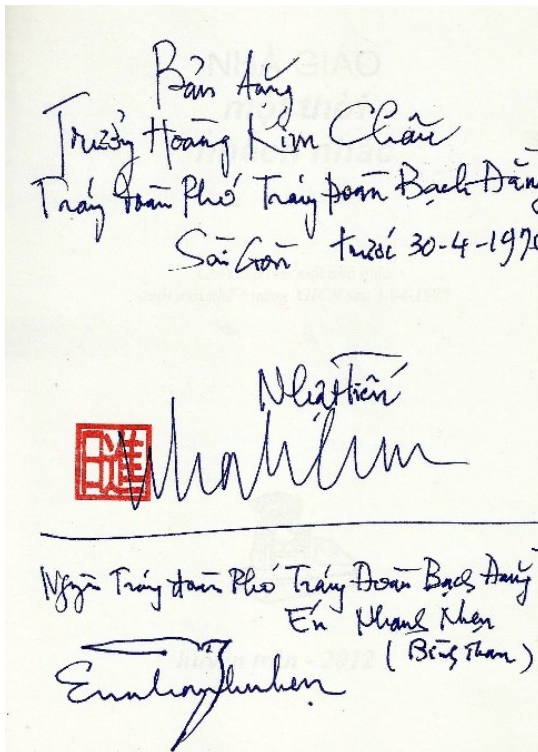 Bản tặng
Trưởng Hoàng Kim Châu
Tráng Đoàn Phó Tráng Đoàn Bạch Đằng
Sài Gòn trước 30-4-197
Nhật Tiến
日進
Nguyên Tráng đoàn Phó Tráng Đoàn Bạch Đằng
Én Nhanh Nhẹn
huyền trân - 2012